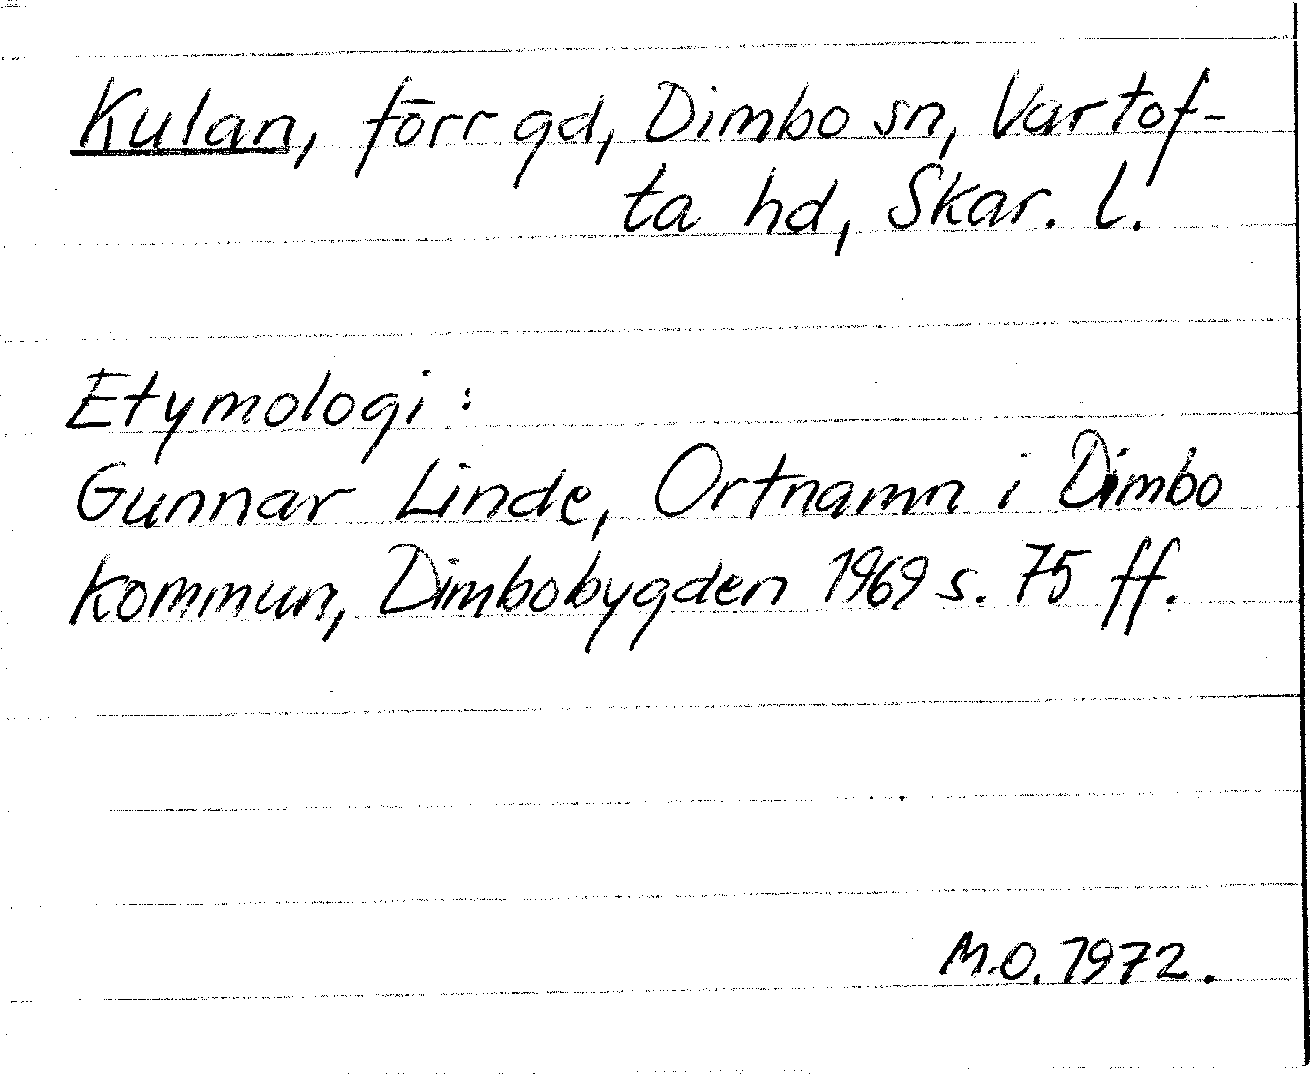 Kulan, förr gd, Dimbo sn, Vartof-
ta hd, Skar. l.
Etymologi:
Gunnar Linde, Ortnamn i Dimbo
kommun, Dimbobygden 1969 s. 75 ff.
M.O. 1972.